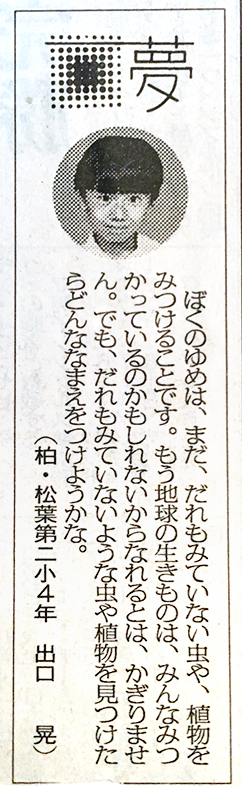 夢
ぼくのゆめは、まだ、だれもみていない虫や、植物を
みつけることです。もう地球の生きものは、みんなみつ
かっているのかもしれないからなれるとは、かぎりませ
ん。でも、だれもみていないような虫や植物を見つけた
らどんななまえをつけようかな。
（柏・松葉第二小4年　出口　晃）